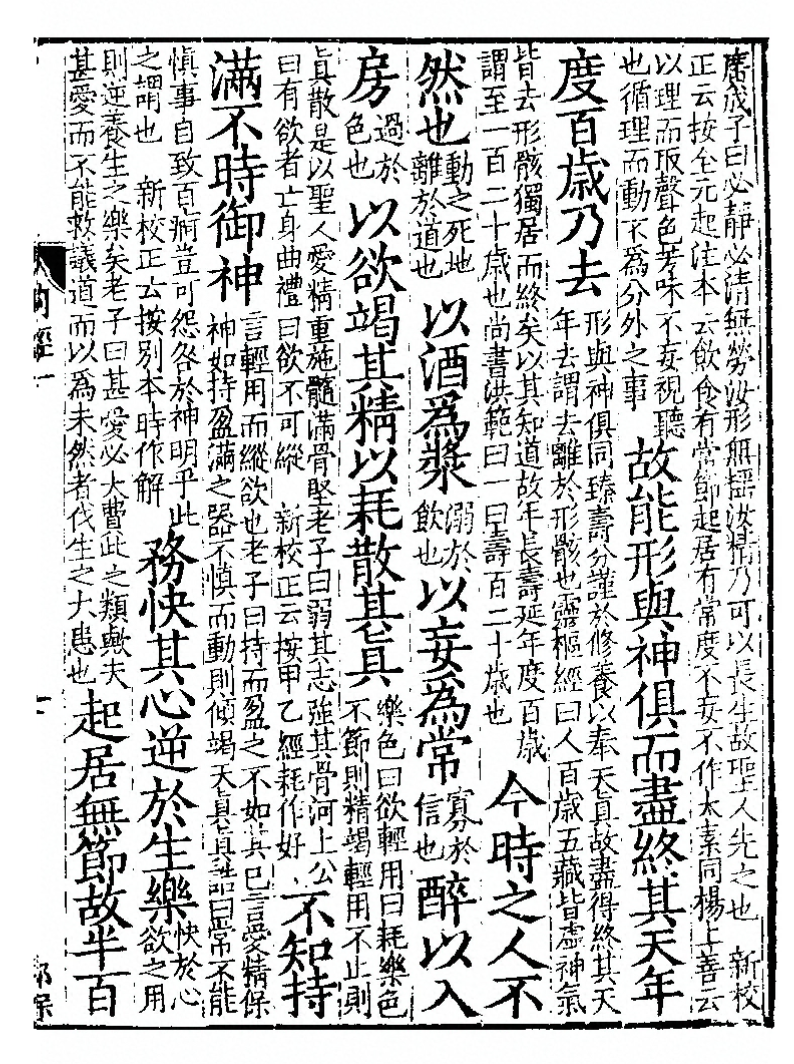 廣成子曰必靜必清無勞汝形無搖汝精乃可以長生故聖人先之也 新校
正云按全元起注本云飲食有常節起居有常度不妄不作太素同楊上善云
以理而取聲色芳味不妄視聽
也循理而動不爲分外之事
故能形與神俱而盡終其天年
度百歲乃去
形與神俱同臻壽分謹於修養以奉天真故盡得終其天
年去謂去離於形骸也靈樞經曰人百歲五藏皆虛神氣
皆去形骸獨居而終矣以其知道故年長壽延年度百歲
謂至一百二十歲也尚書洪範曰一曰壽百二十歲也
今時之人不
然也
動之死地
離於道也
以酒爲漿
溺於
飲也
以妄為常
寡於
信也
醉以入
房
過於
色也
以欲竭其精以耗散其真
樂色曰欲輕用曰耗樂色
不節則精竭輕用不止則
真散是以聖人愛精重施髓滿骨堅老子曰弱其志強其骨河上公
曰有欲者亡身曲禮曰欲不可縱 新校正云按甲乙經耗作好、
不知持
滿不時御神
言輕用而縱欲也老子曰持而盈之不如其已言愛精保
神如持盈滿之器不慎而動則傾竭天真真誥曰常不能
慎事自致百痾豈可怨咎於神明乎此
之謂也 新校正云按別本時作解
務快其心逆於生樂
快於心
欲之用
則逆養生之樂矣老子曰甚愛必大費此之類歟夫
甚愛而不能救議道而以爲未然者伐生之大患也
起居無節故半百